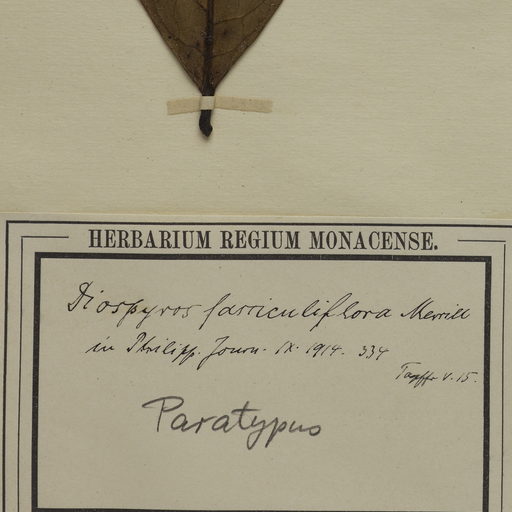 HERBARIUM REGIUM MONACENSE.
Diospyros fasciculiflora Merrill
in Philipp. Journ. IX. 1914. 334
V. 15.
Paratypus